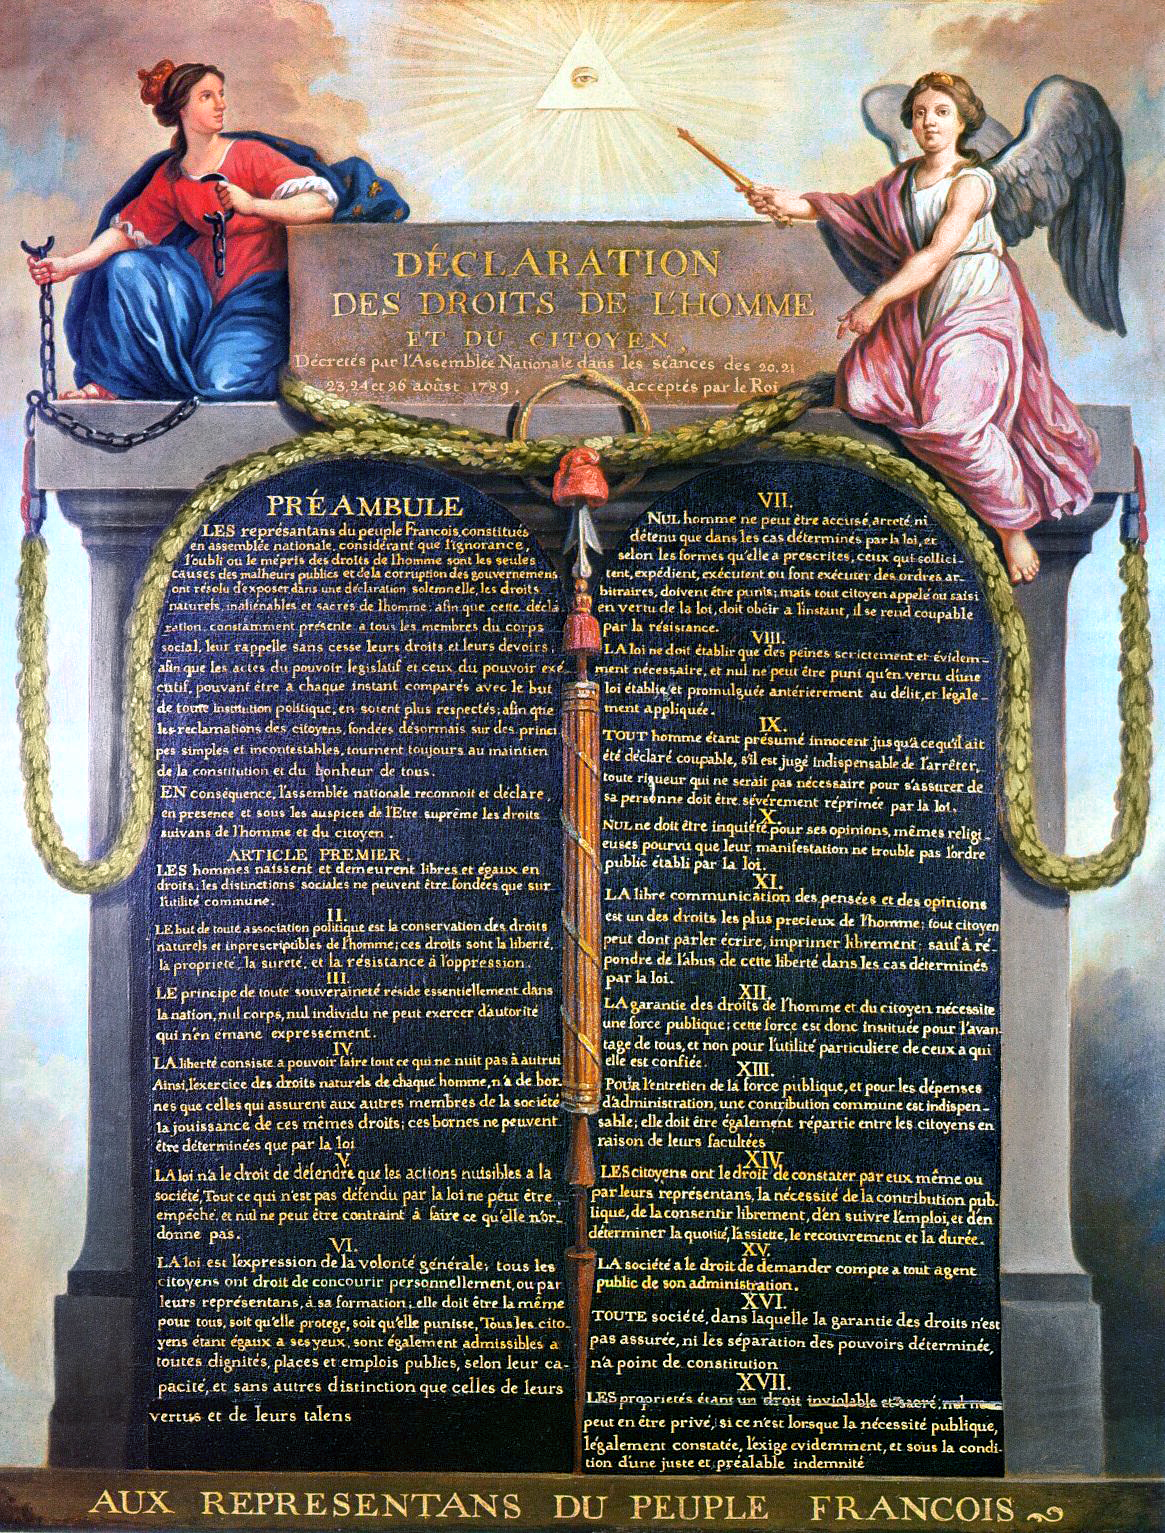 DÉCLARATION
DES DROITS DE L'HOMME
ET DU CITOYEN,
Décretés par l'Assemblée Nationale dans les séances des 20, 21
23, 24 et 26 aoûst 1789, acceptés par le Roi
PRÉAMBULE
LES représantans du peuple François, constitués
en assemblée nationale, considérant que l'ignorance,
l'oubli ou le mépris des droits de l'homme sont les seules
causes des malheurs publics et de la corruption des gouvernemens
ont résolu d'exposer dans une déclaration solemnelle, les droits
naturels, inaliénables et sacrés de l'homme; afin que cette décla
ration, constamment présente a tous les membres du corps
social, leur rappelle sans cesse leurs droits et leurs devoirs;
afin que les actes du pouvoir législatif et ceux du pouvoir exé
cutif, pouvant être a chaque instant comparés avec le but
de toute institution politique, en soient plus respectés; afin que
les reclamations des citoyens, fondées désormais sur des princi
pes simples et incontestables, tournent toujours au maintien
de la constitution et du bonheur de tous.
EN conséquence, l'assemblée nationale reconnoit et déclare,
en presence et sous les auspices de l'Etre suprême les droits
suivans de l'homme et du citoyen.
ARTICLE PREMIER.
LES hommes naissent et demeurent libres et égaux en
droits; les distinctions sociales ne peuvent être fondées que sur
l'utilité commune.
II.
LE but de toute association politique est la conservation des droits
naturels et inprescriptibles de l'homme; ces droits sont la liberté,
la proprieté, la sureté, et la résistance à l'oppression.
III.
LE principe de toute souveraineté réside essentiellement dans
la nation, nul corps, nul individu ne peut exercer d'autorité
qui n'en emane expressement.
IV.
LA liberté consiste a pouvoir faire tout ce qui ne nuit pas à autrui
Ainsi, l'exercice des droits naturels de chaque homme, n'a de bor-
nes que celles qui assurent aux autres membres de la société
la jouissance de ces mêmes droits; ces bornes ne peuvent
être déterminées que par la loi
V.
LA loi n'a le droit de défendre que les actions nuisibles a la
société, Tout ce qui n'est pas défendu par la loi ne peut être
empêché, et nul ne peut être contraint à faire ce qu'elle n'or-
donne pas.
VI.
LA loi est l'expression de la volonté générale; tous les
citoyens ont droit de concourir personnellement, ou par
leurs représentans, à sa formation; elle doit être la même
pour tous, soit qu'elle protege, soit qu'elle punisse, Tous les cito-
yens étant égaux a ses yeux, sont également admissibles a
toutes dignités, places et emplois publics, selon leur ca-
pacité, et sans autres distinction que celles de leurs
vertus et de leurs talens
VII.
NUL homme ne peut être accusé, arreté, ni
détenu que dans les cas déterminés par la loi, et
selon les formes qu'elle a prescrites, ceux qui sollici-
tent, expédient, exécutent ou font exécuter des ordres ar-
bitraires, doivent être punis; mais tout citoyen appelé ou saisi
en vertu de la loi, doit obéir a l'instant, il se rend coupable
par la résistance.
VIII.
LA loi ne doit établir que des peines strictement et évidem-
ment nécessaire, et nul ne peut être puni qu'en vertu d'une
loi établie, et promulguée antérierement au délit, et légale-
ment appliquée.
IX.
TOUT homme étant présumé innocent jusqu'a ce qu'il ait
été déclaré coupable, s'il est jugé indispensable de l'arrêter,
toute rigueur qui ne serait pas nécessaire pour s'assurer de
sa personne doit être sévèrement réprimée par la loi.
X.
NUL ne doit être inquiété pour ses opinions, mêmes religi-
euses pourvu que leur manifestation ne trouble pas l'ordre
public établi par la loi.
XI.
LA libre communication des pensées et des opinions
est un des droits les plus precieux de l'homme; tout citoyen
peut dont parler écrire, imprimer librement; sauf à ré-
pondre de l'abus de cette liberté dans les cas déterminés
par la loi.
XII.
LA garantie des droits de l'homme et du citoyen nécessite
une force publique; cette force est donc instituée pour l'avan-
tage de tous, et non pour l'utilité particuliere de ceux a qui
elle est confiée.
XIII.
POUR l'entretien de la force publique, et pour les dépenses
d'administration, une contribution commune est indispen-
sable; elle doit être également répartie entre les citoyens en
raison de leurs facultées
XIV.
LES citoyens ont le droit de constater par eux même ou
par leurs représentans, la nécessité de la contribution pub-
lique, de la consentir librement, d'en suivre l'emploi, et d'en
déterminer la quotité, l'assiette, le recouvrement et la durée.
XV.
LA société a le droit de demander compte a tout agent
public de son administration.
XVI.
TOUTE société, dans laquelle la garantie des droits n'est
pas assurée, ni les séparation des pouvoirs déterminée,
n'a point de constitution
XVII.
LES proprietés étant un droit inviolable et sacré, nul ne
peut en être privé, si ce n'est lorsque la nécessité publique,
légalement constatée, l'exige evidemment, et sous la condi-
tion d'une juste et préalable indemnité
AUX REPRESENTANS DU PEUPLE FRANCOIS